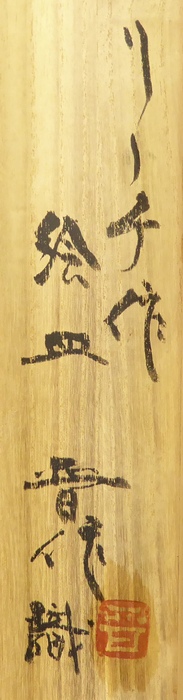 リーチ作
絵皿
晋作識
晋